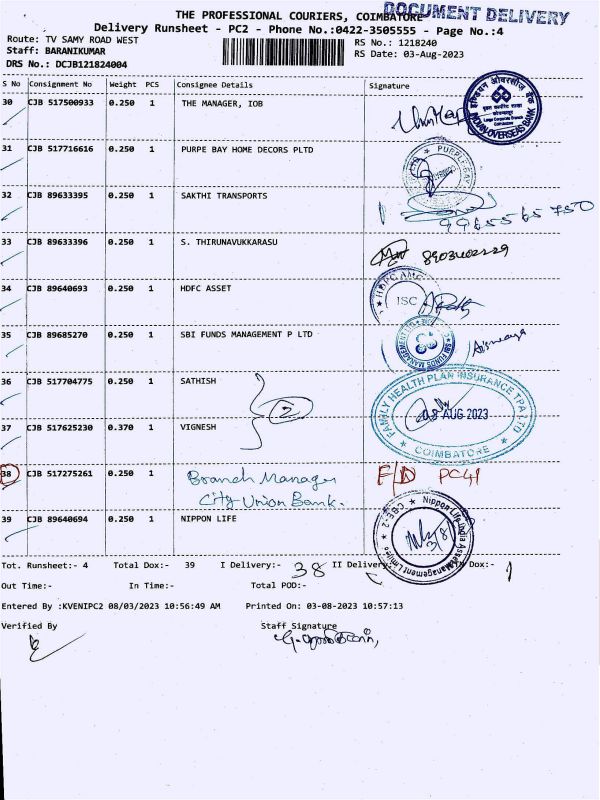 THE PROFESSIONAL COURIERS, COIMBATORE
DOCUMENT DELIVERY
Delivery Runsheet - PC2 - Phone No.:0422-3505555 - Page No.:4
Route: TV SAMY ROAD WEST
RS No.: 1218240
Staff: BARANIKUMAR
RS Date: 03-Aug-2023
DRS No.: DCJB121824004
S No Consignment No Weight PCS Consignee Details Signature
30 CJB 517500933 0.250 1 THE MANAGER, IOB
INDIAN OVERSEAS BANK
31 CJB 517716616 0.250 1 PURPE BAY HOME DECORS PLTD
32 CJB 89633395 0.250 1 SAKTHI TRANSPORTS
9965565750
33 CJB 89633396 0.250 1 S. THIRUNAVUKKARASU
34 CJB 89640693 0.250 1 HDFC ASSET
HDFC AMC
ISC
35 CJB 89685270 0.250 1 SBI FUNDS MANAGEMENT P LTD
SBI FUNDS MANAGEMENT
36 CJB 517704775 0.250 1 SATHISH
2
FAMILY HEALTH PLAN INSURANCE TPA LTD
08 AUG 2023
COIMBATORE
37 CJB 517625230 0.370 1 VIGNESH
38 CJB 517275261 0.250 1 Branch Manager
City Union Bank.
F/D PC41
39 CJB 89640694 0.250 1 NIPPON LIFE
Nippon Life India Asset Management Limited
CBE-2
Tot. Runsheet:- 4 Total Dox:- 39 I Delivery:- 38 II Delivery Dox:- 1
Out Time:- In Time:- Total POD:-
Entered By :KVENIPC2 08/03/2023 10:56:49 AM Printed On: 03-08-2023 10:57:13
Verified By Staff Signature